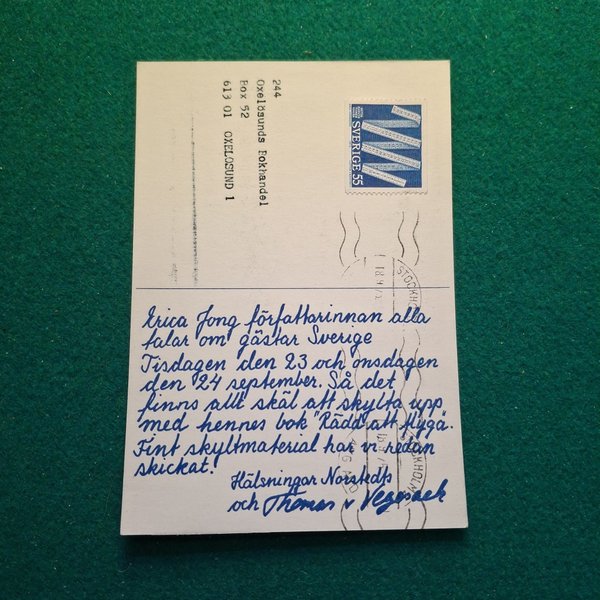 244
Oxelösunds Bokhandel
Box 52
613 01 OXELÖSUND 1
SVERIGE 55
STOCKHOLM
Erica Jong författarinnan alla
talar om gästar Sverige
Tisdagen den 23 och onsdagen
den 24 september. Så det
finns allt skäl att skylta upp
med hennes bok "Rädd att flyga".
Fint skyltmaterial har vi redan
skickat!
Hälsningar Norstedts
och Thomas v Vegesack
STOCKHOLM